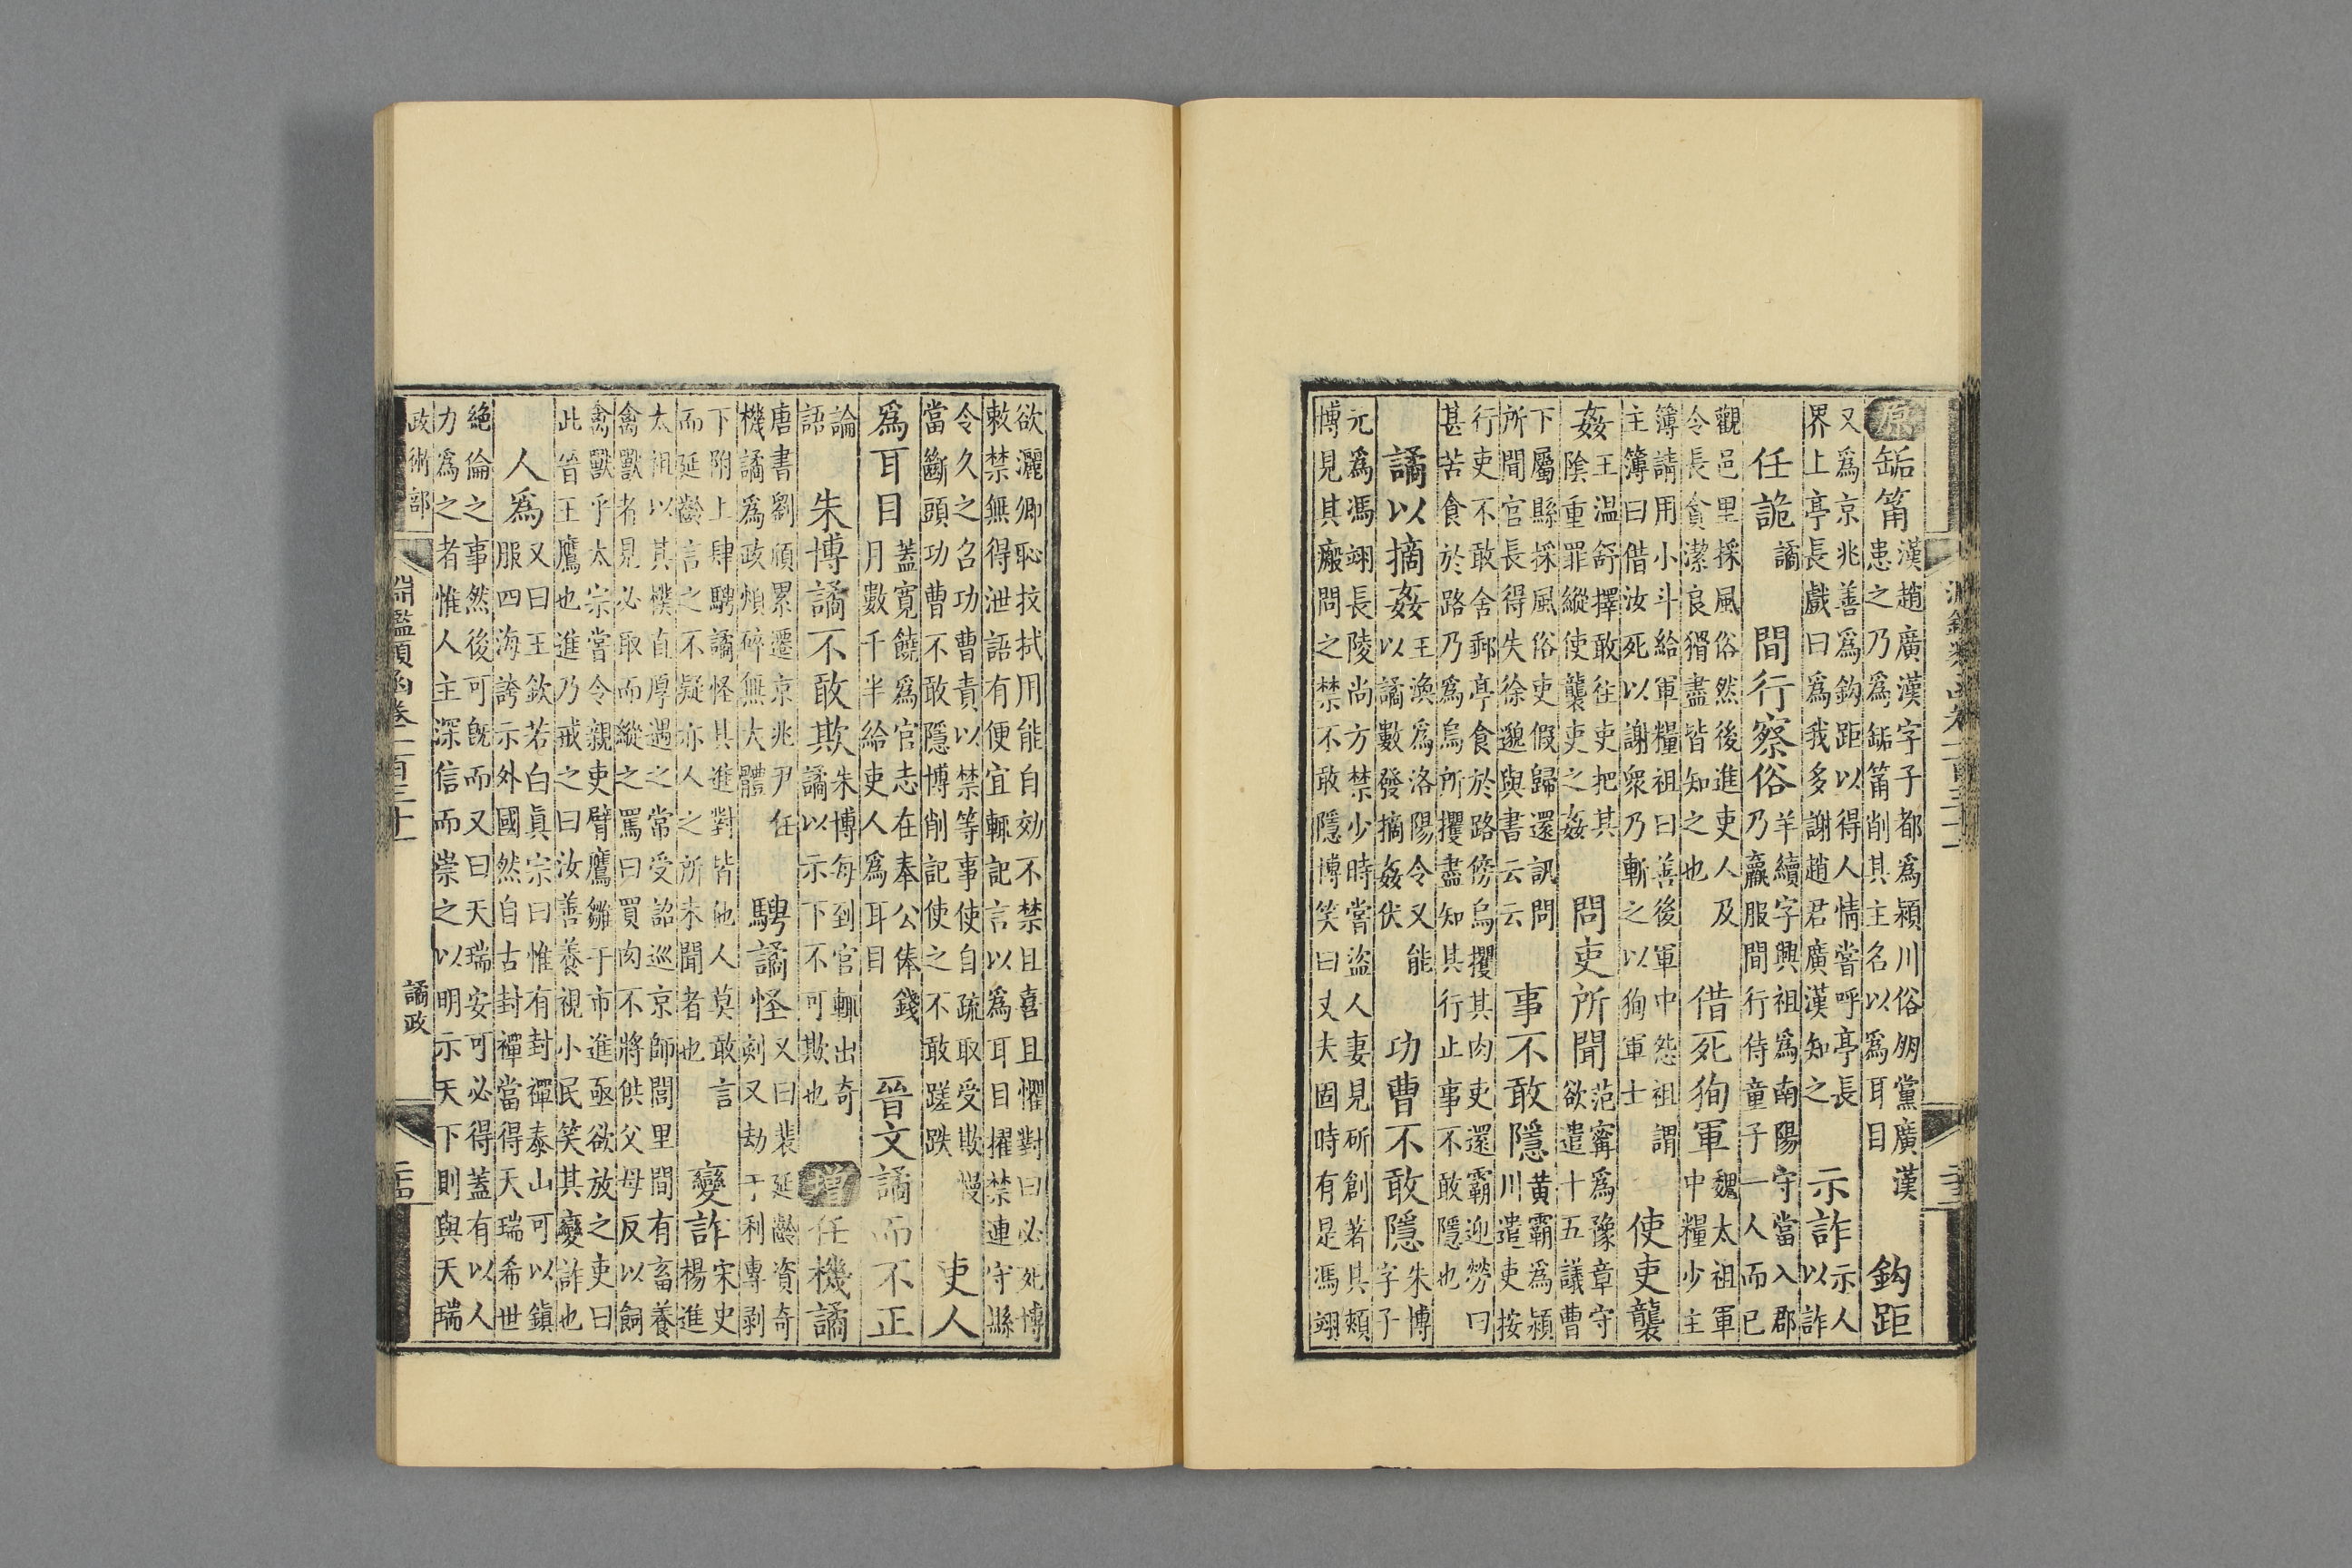 原
缿筩
漢趙廣漢字子都爲潁川俗朋黨廣漢
患之乃爲缿筩削其主名以爲耳目
鈎距
又爲京兆善爲鈎距以得人情嘗呼亭長
界上亭長戲曰爲我多謝趙君廣漢知之
示詐
示人
以詐
任詭
譎
間行察俗
羊續字興祖爲南陽守當入郡
乃羸服間行侍童子一人而已
觀邑里採風俗然後進吏人及
令長貪潔良猾盡皆知之也
借死狥軍
魏太祖軍
中糧少主
簿請用小斗給軍糧祖曰善後軍中怨祖謂
主簿曰借汝死以謝衆乃斬之以狥軍士
使吏襲
姦
王温舒擇敢往吏把其
陰重罪縱使襲吏之姦
問吏所聞
范甯爲豫章守
欲遣十五議曹
下屬縣採風俗吏假歸還訊問
所聞官長得失徐邈與書云云
事不敢隱
黃霸爲潁
川遣吏按
行吏不敢舍郵亭食於路傍烏攫其肉吏還霸迎勞曰
甚苦食於路乃爲烏所攫盡知其行止事不敢隱也
譎以摘姦
王渙爲洛陽令又能
以譎數發摘姦伏
功曹不敢隱
朱博
字子
元爲馮翊長陵尚方禁少時嘗盜人妻見斫創著其頰
博見其瘢問之禁不敢隱博笑曰丈夫固時有是馮翊
欲灑卿恥技拭用能自効不禁且喜且懼對曰必死博
敕禁無得泄語有便宜輒記言以爲耳目擢禁連守縣
令久之召功曹責以禁等事使自疏取受欺謾
當斷頭功曹不敢隱博削記使之不敢蹉跌
吏人
爲耳目
蓋寬饒爲官志在奉公俸錢
月數千半給吏人爲耳目
晉文譎而不正
論
語
朱博譎不敢欺
朱博每到官輒出奇
譎以示下不可欺也
增
任機譎
唐書劉頎累遷京兆尹任
機譎爲政煩碎無大體
騁譎怪
又曰裴延齡資奇
剡又劫于利專剥
下附上肆騁譎怪其進對皆他人莫敢言
而延齡言之不疑亦人之所未聞者也
變詐
宋史
楊進
太祖以其樸直厚遇之常受詔巡京師閭里間有畜養
禽獸者見必取而縱之罵曰買肉不將供父母反以飼
禽獸乎太宗嘗令親吏臂鷹雛于市進亟欲放之吏曰
此晉王鷹也進乃戒之曰汝善養視小民笑其變詐也
人爲
又曰王欽若白眞宗曰惟有封禪泰山可以鎮
服四海誇示外國然自古封禪當得天瑞希世
絶倫之事然後可旣而又曰天瑞安可必得蓋有以人
力爲之者惟人主深信而崇之以明示天下則與天瑞
政術部
淵鑑類函卷一百三十一
譎政